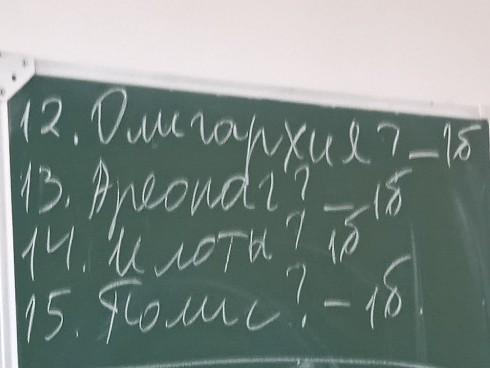 12. Олигархия? - 1б
13. Ареопаг? - 1б
14. Илоты? 1б
15. Полис? - 1б.